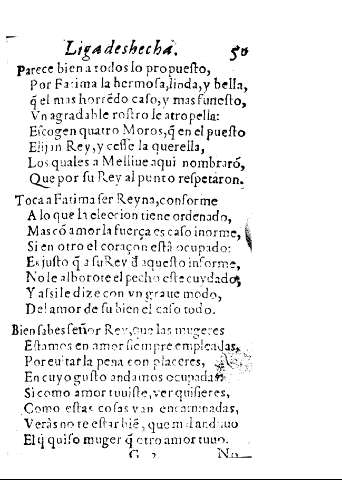 Liga deshecha. 50
Parece bien a todos lo propuesto,
Por Fatima la hermosa, linda, y bella,
q̃ el mas horrẽdo caso, y mas funesto,
Vn agradable rostro le atropella:
Escogen quatro Moros, q̃ en el puesto
Elijan Rey, y cesse la querella,
Los quales a Melliue aqui nombrarõ,
Que por su Rey al punto respetaron.
Toca a Fatima ser Reyna, conforme
A lo que la eleccion tiene ordenado,
Mas cõ amor la fuerça es caso inorme,
Si en otro el coraçon està ocupado:
Es justo q̃ a su Rev d̃ aquesto informe,
No le alborote el pecho este cuydado,
Y assi le dize con vn graue modo,
Del amor de su bien el caso todo.
Bien sabes señor Rey, que las mugeres
Estamos en amor siempre empleadas,
Por euitar la pena con placeres,
En cuyo gusto andamos ocupadas
Si como amor tuuiste, ver quisieres,
Como estas cosas van encaminadas,
Veràs no te estar biẽ, que mi
El q̃ quiso muger q̃ otro amor tuuo.
G 2 No